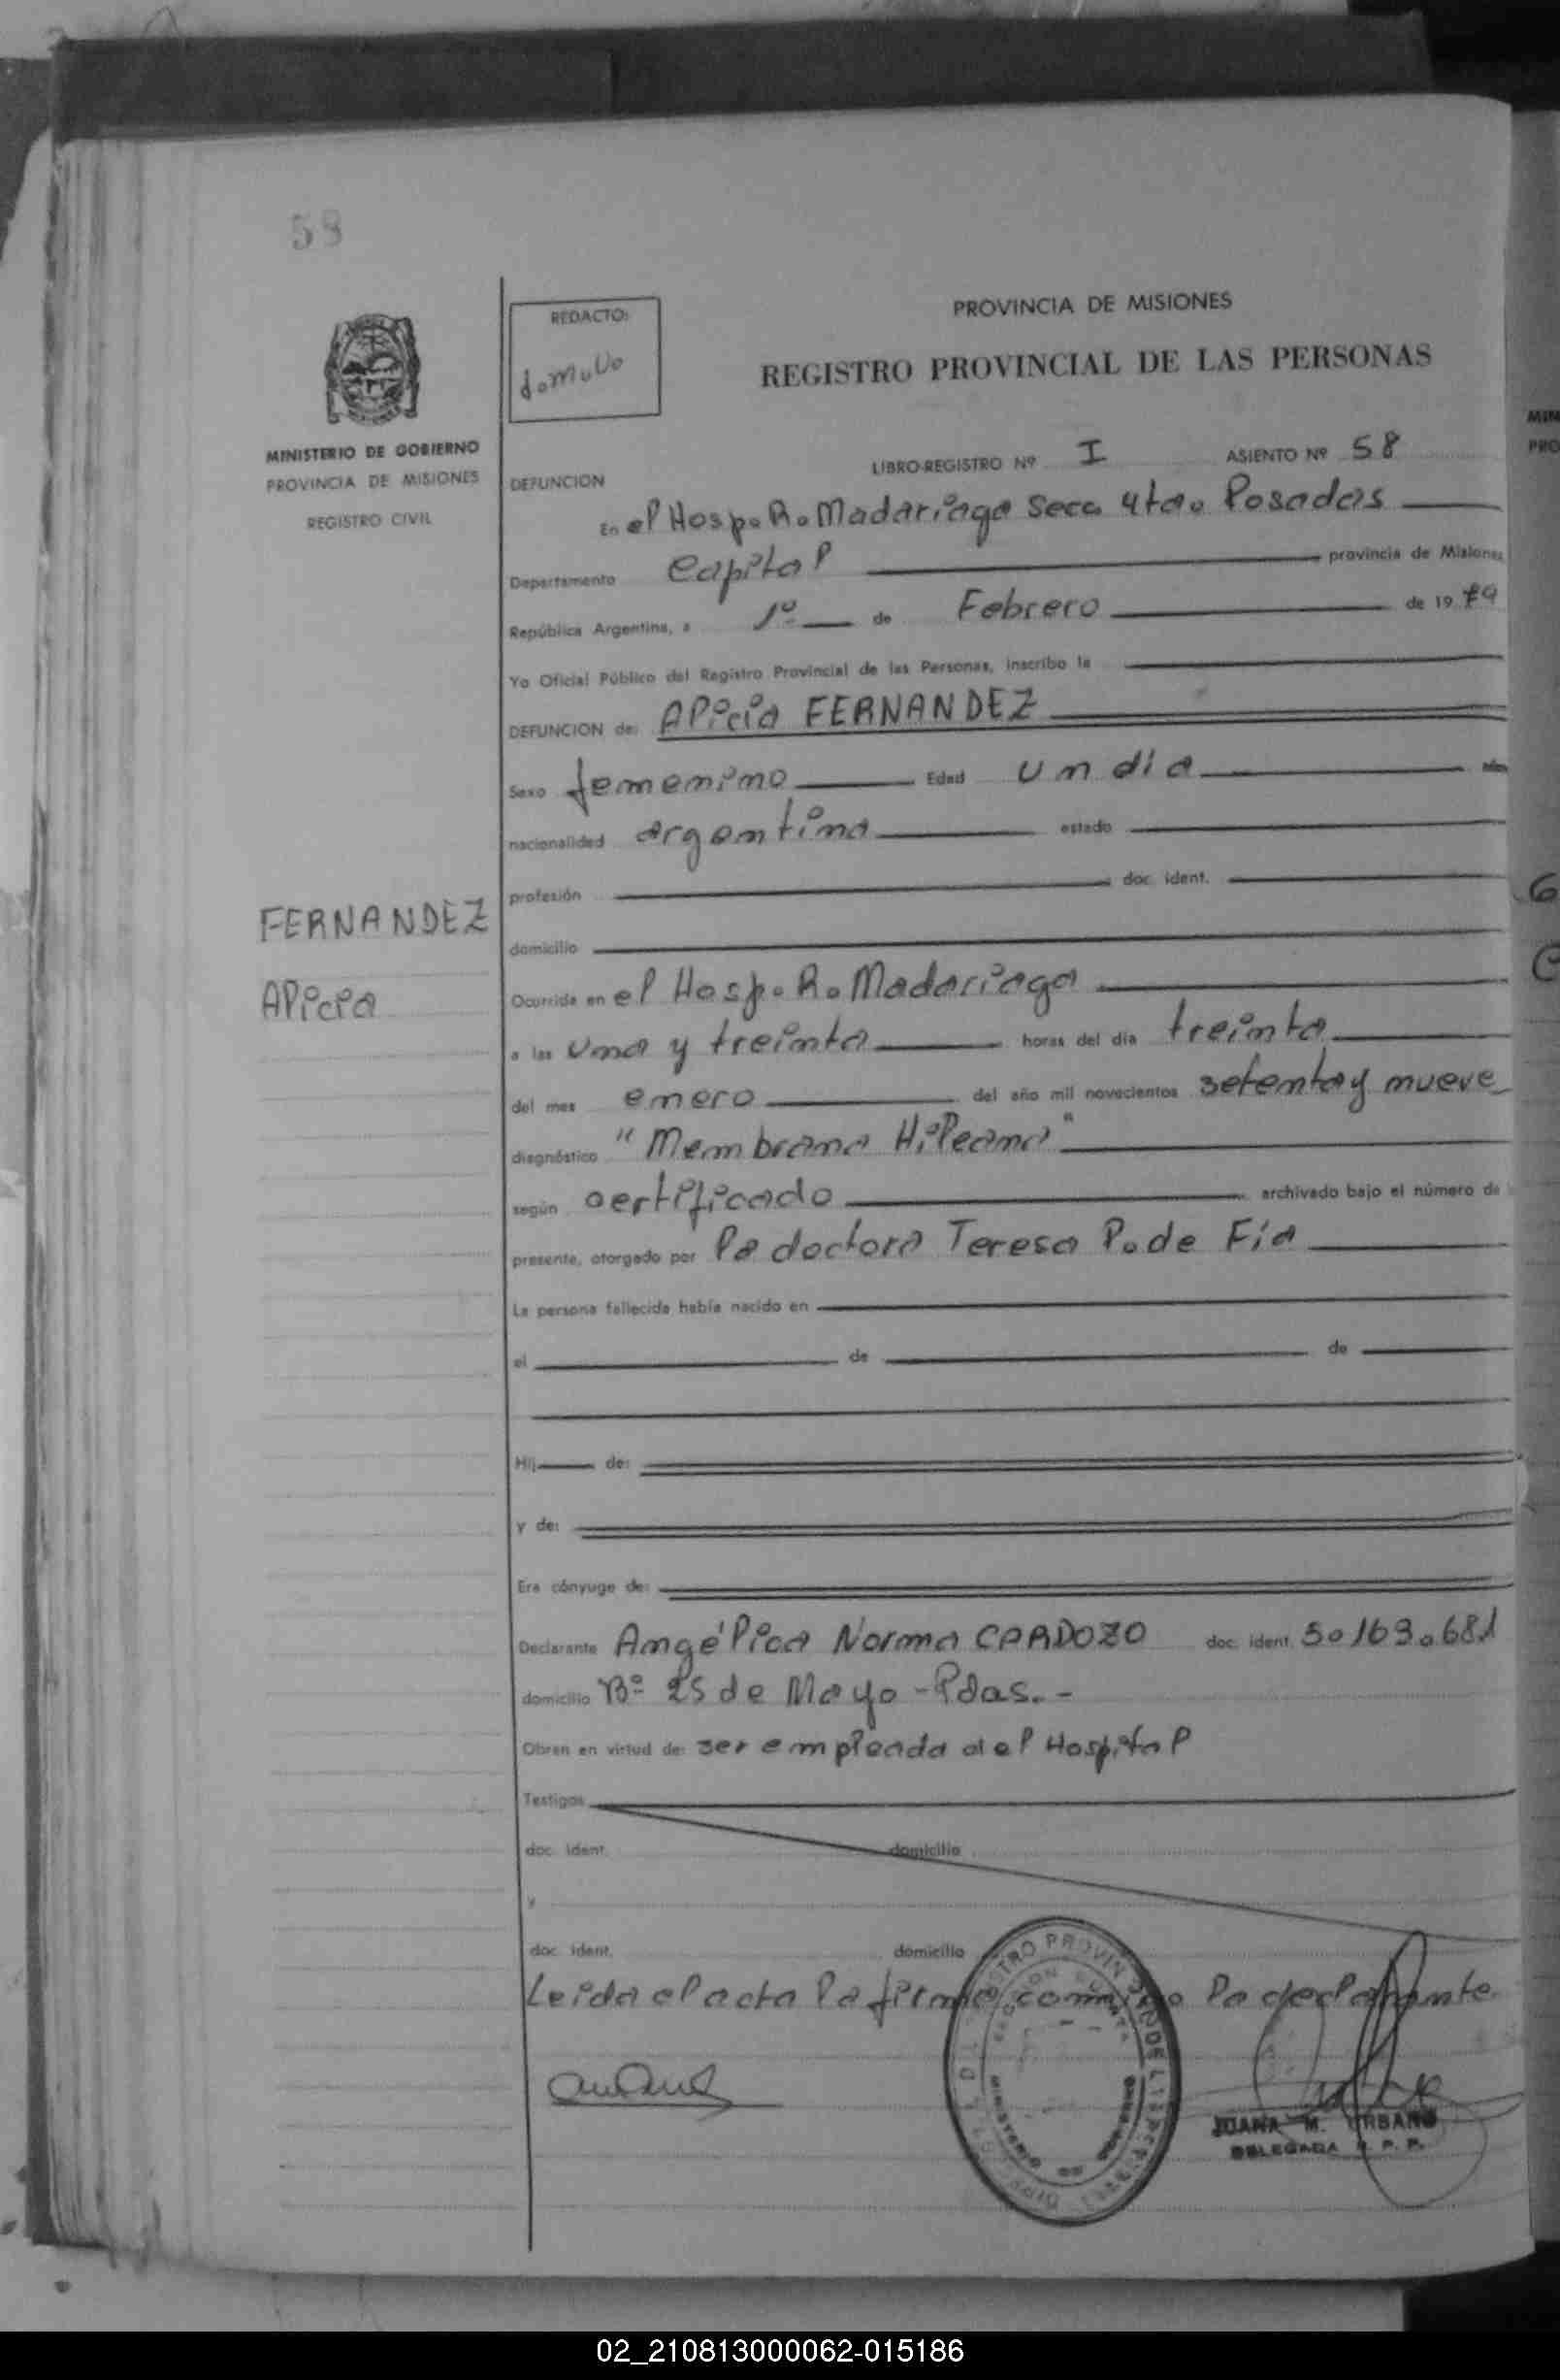 58
PROVINCIA DE MISIONES
REGISTRO PROVINCIAL DE LAS PERSONAS
REDACTO:
MINISTERIO DE GOBIERNO
PROVINCIA DE MISIONES
REGISTRO CIVIL
LIBRO-REGISTRO Nº I ASIENTO Nº 58
DEFUNCION
En el Hosp. R. Madariaga Secc 4ta. Posadas
Departamento Capital provincia de Misiones
República Argentina, a 1º de Febrero de 1979
Yo Oficial Público del Registro Provincial de las Personas, inscribo la
DEFUNCION de: Alicia FERNANDEZ
Sexo femenino Edad un día años
nacionalidad argentina estado
profesión doc. ident.
FERNANDEZ
domicilio
Alicia
Ocurrida en el Hosp. R. Madariaga
a las una y treinta horas del día treinta
del mes enero del año mil novecientos setenta y nueve
diagnóstico "Membrana Hileana"
según certificado archivado bajo el número de
presente, otorgado por la doctora Teresa P. de Fía
La persona fallecida había nacido en
el de de
Hij de:
y de:
Era cónyuge de:
Declarante Angélica Norma CARDOZO doc. ident. 5.163.681
domicilio Bº 25 de Mayo - Pdas. -
Obran en virtud de: ser empleada del Hospital
Testigos
doc. ident. domicilio
y
doc. ident. domicilio
Leida el acta la firma conmigo la declarante
JUANA M. URBANO
DELEGADA R. P. P.
MINISTERIO DE GOBIERNO
MIN
PRO
G
C
02_210813000062-015186